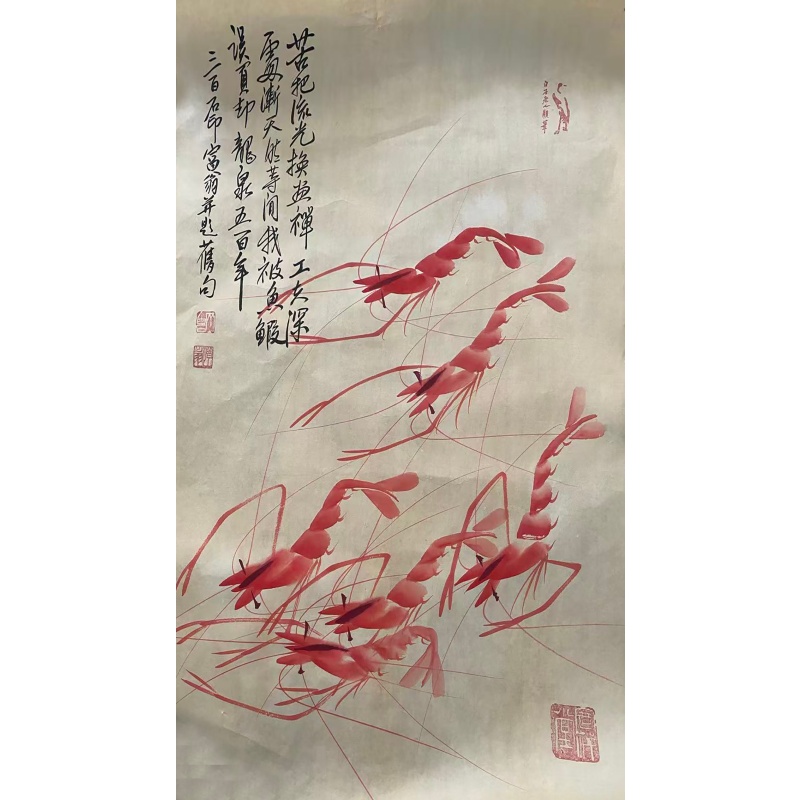 苦把流光換畫禪工夫深
處漸天然等閒我被魚鰕
誤負却龍泉五百年
三百石印富翁并題舊句